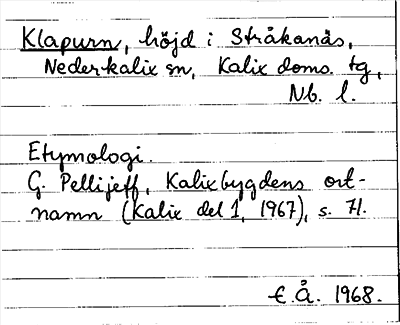 Klapurn, höjd i Stråkanäs,
Nederkalix sn, Kalix doms. tg,
Nb. l.
Etymologi.
G. Pellijeff, Kalixbygdens ort-
namn (Kalix del 1, 1967), s. 71.
E.Å. 1968.